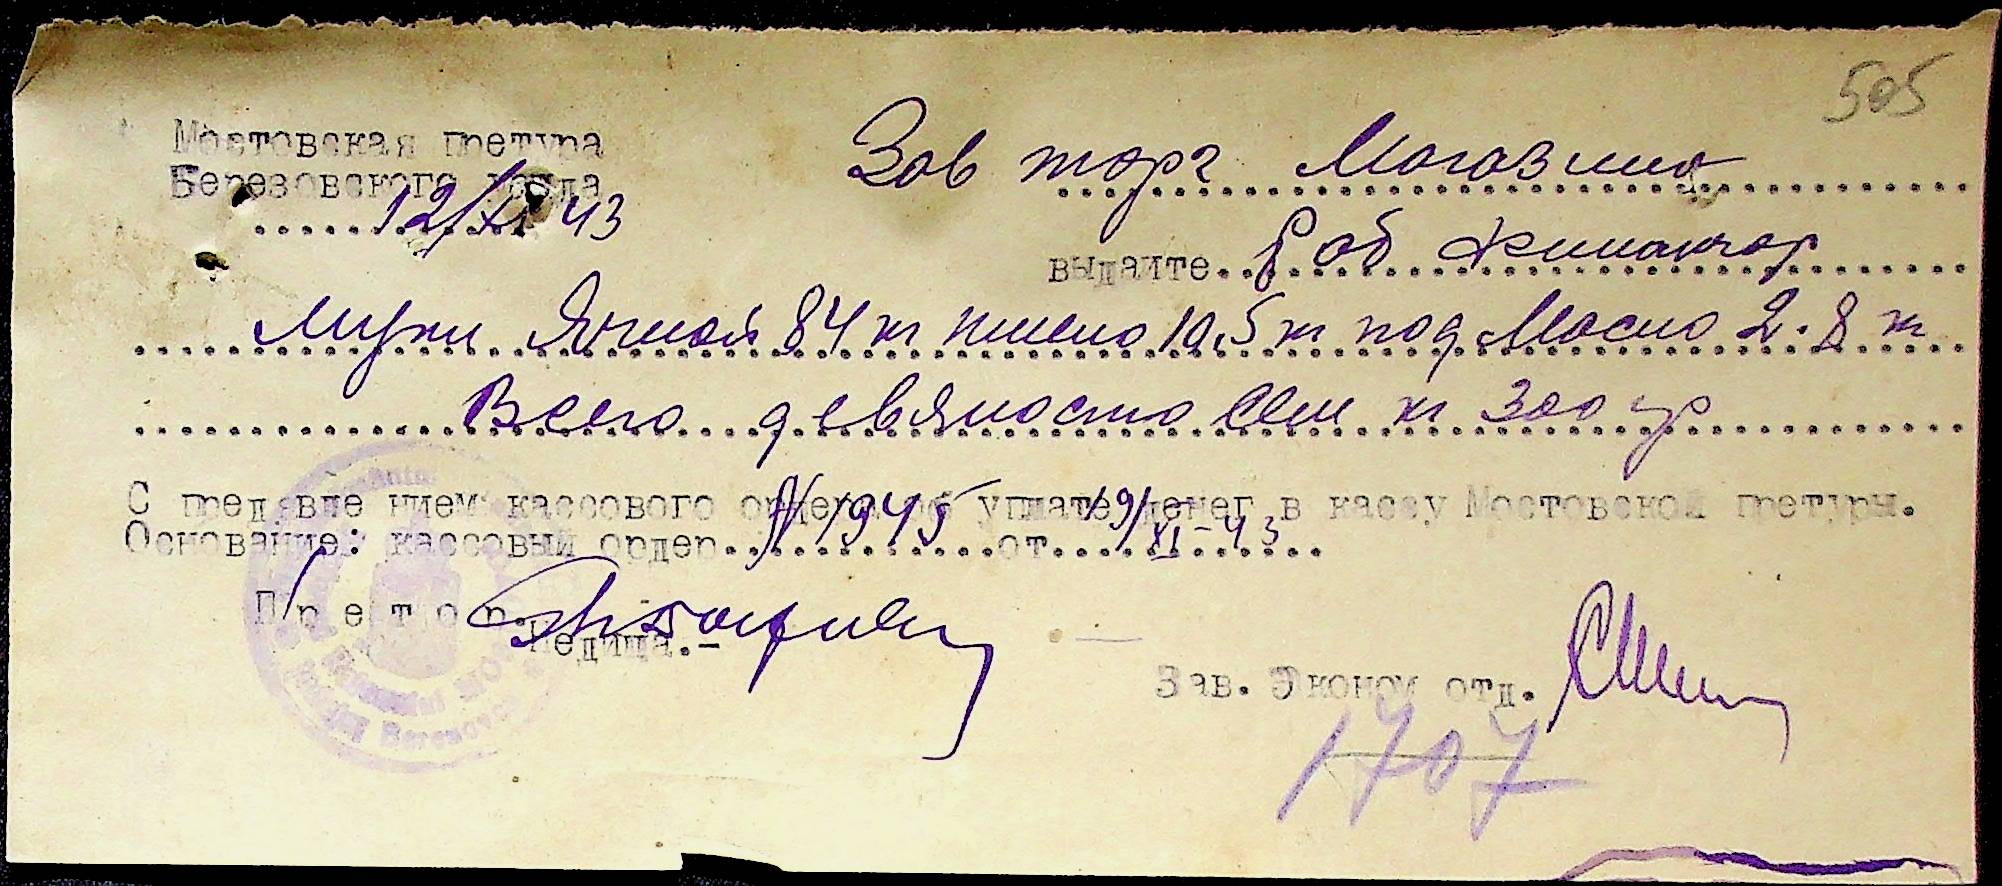 505
Мостовская претура
Березовского уезда
12/XI 43
Зов торг Могозино
выдайте Роб Жиможор
Муки Ячной 84 кг пшено 10,5 кг под Мосло 2.8 кг
Всего девяносто сем кг 300 гр
С пред'явле нием кассового ордера об уплате денег в кассу Мостовской претуры.
Основание: кассовый ордер N 1945 от 19/XI-43
П р е т о р.
Педица.-
Зав. Эконом отд.
1707